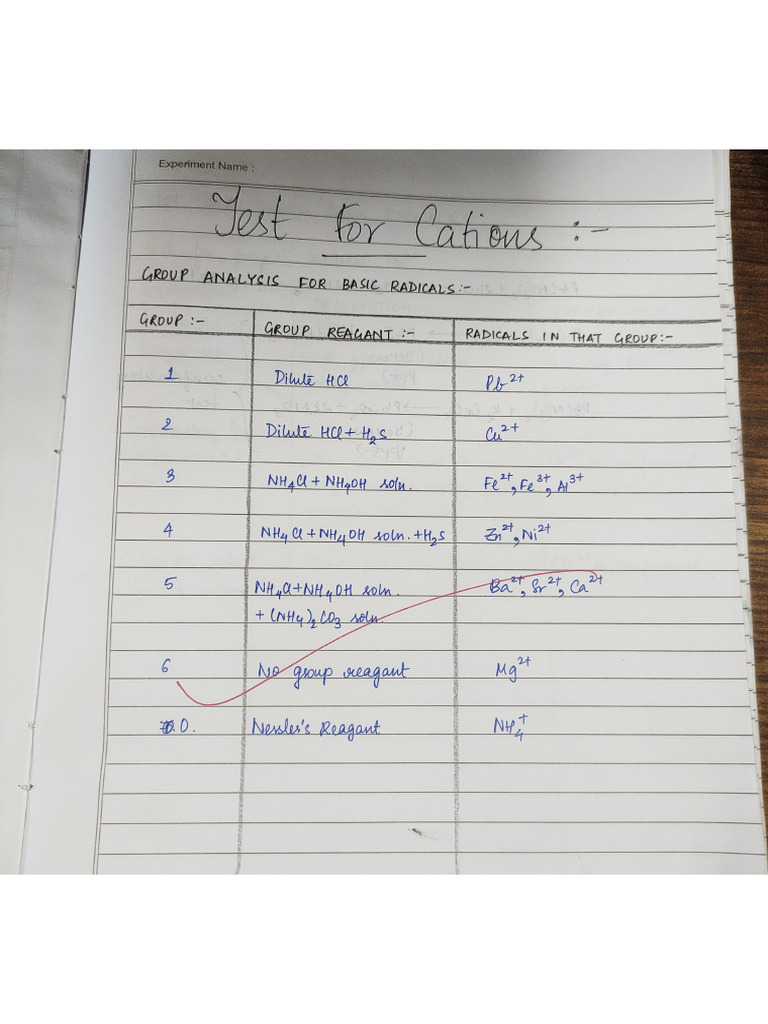 Experiment Name :
Test for Cations :-
GROUP ANALYSIS FOR BASIC RADICALS :-
GROUP :- GROUP REAGANT :- RADICALS IN THAT GROUP:-
1 Dilute HCl Pb²⁺
2 Dilute HCl + H₂S Cu²⁺
3 NH₄Cl + NH₄OH soln. Fe²⁺, Fe³⁺, Al³⁺
4 NH₄Cl + NH₄OH soln. + H₂S Zn²⁺, Ni²⁺
5 NH₄Cl + NH₄OH soln. Ba²⁺, Sr²⁺, Ca²⁺
+ (NH₄)₂CO₃ soln.
6 No group reagant Mg²⁺
0. Nessler's Reagant NH₄⁺